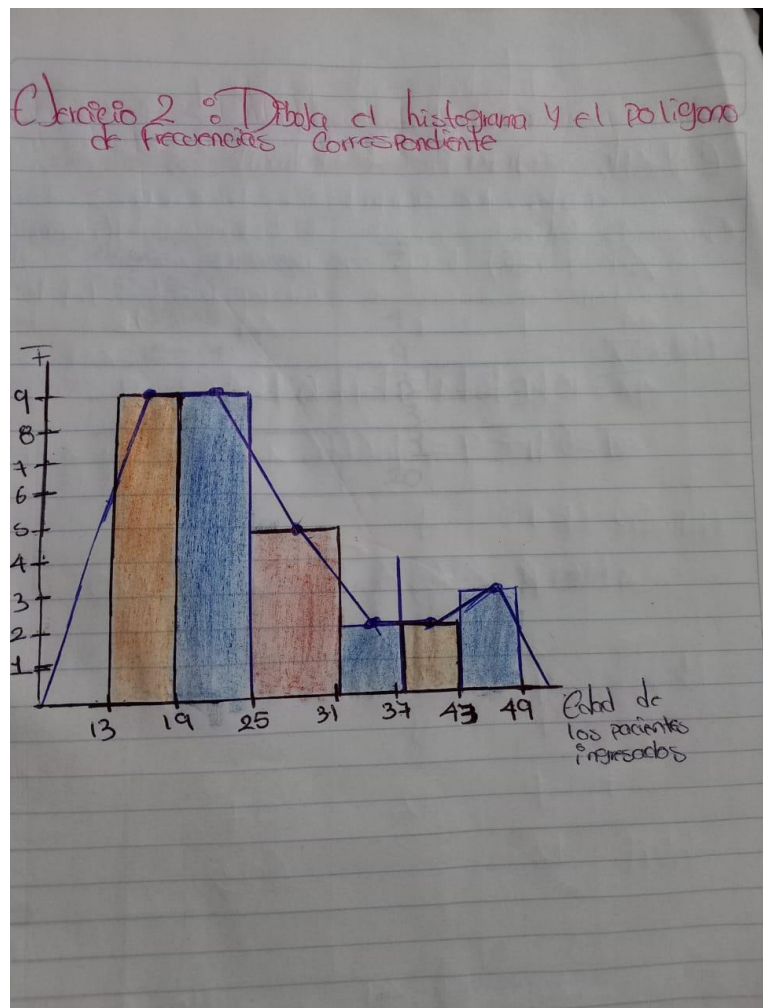 Ejercicio 2 : Dibuja el histograma y el poligono
de frecuencias Correspondiente
F
9
8
7
6
5
4
3
2
1
13 19 25 31 37 43 49
Edad de
los pacientes
ingresados